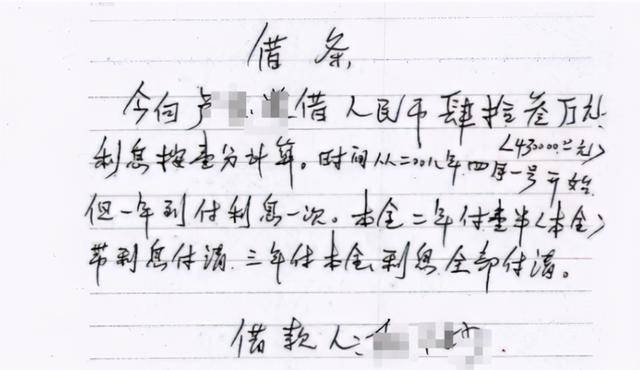 借条
今向卢借人民币肆拾叁万元
<430000.00元>
利息按壹分计算。时间从二00八年四月一号开始
但一年到付利息一次。本金二年付壹半<本金>
带利息付清.三年付本金利息全部付清。
借款人: